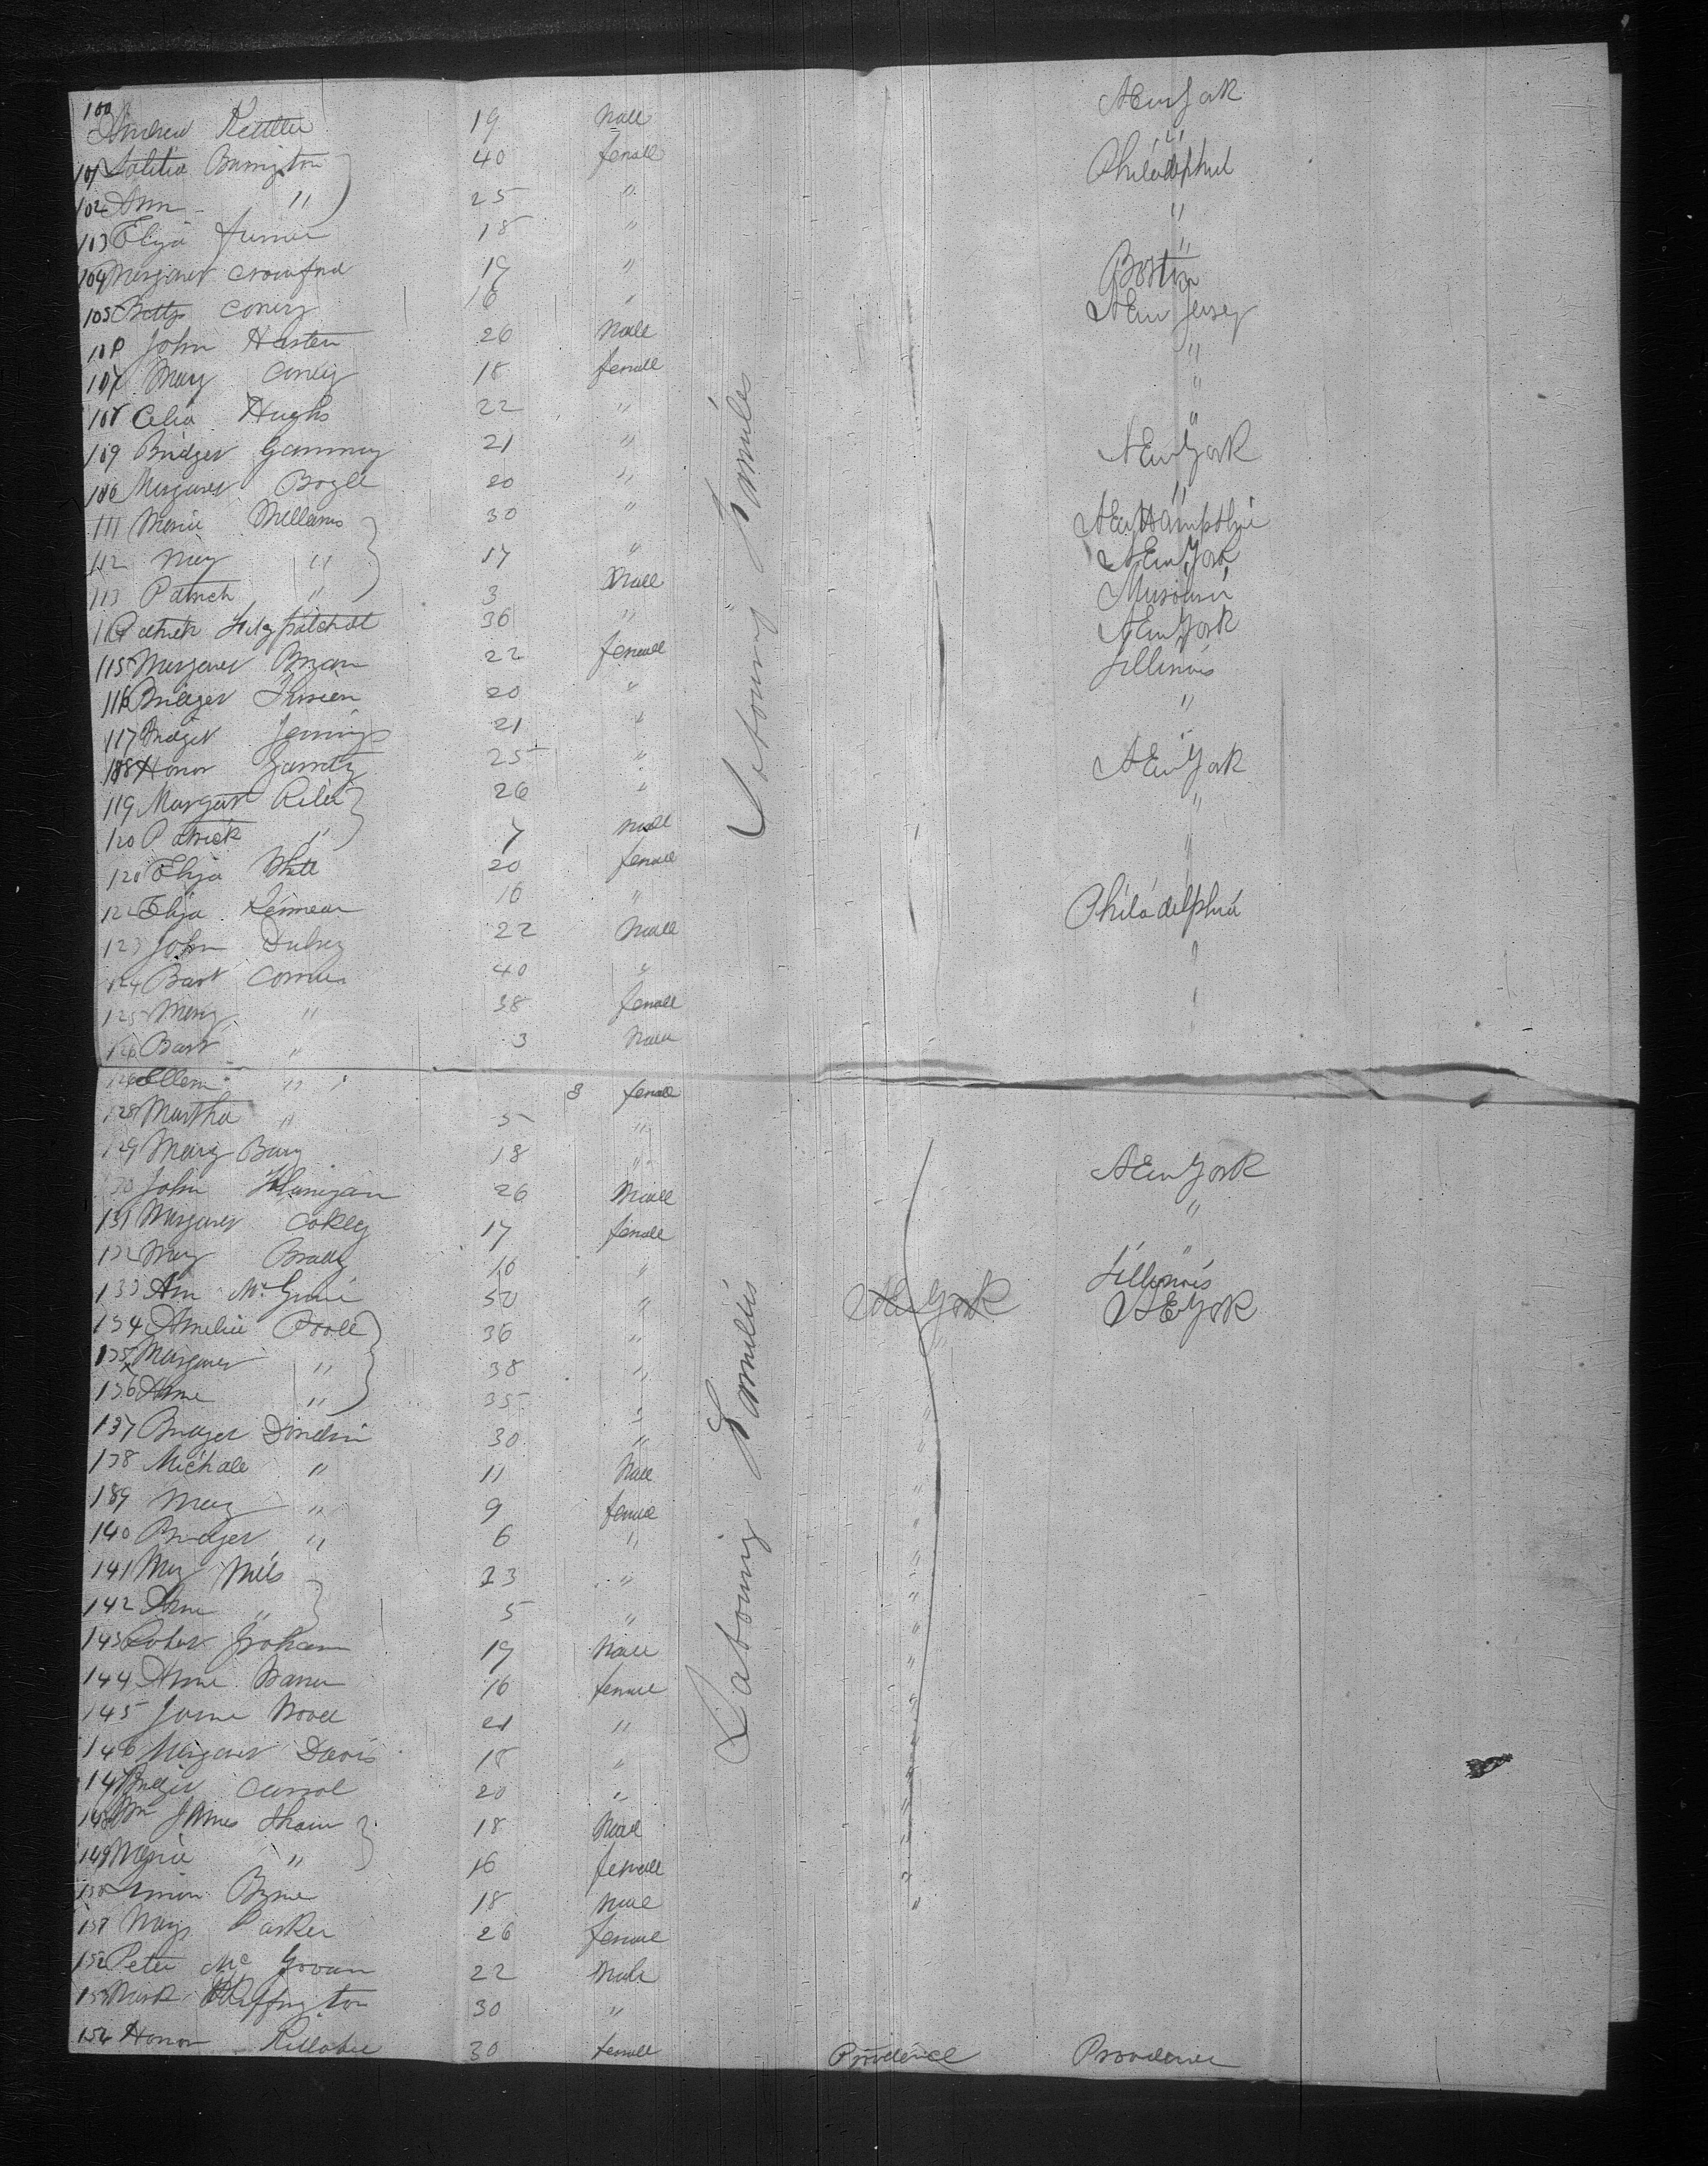 100 Andrew Kettler 19 Male New York
101 Latitia Barrington 40 female "
102 Ann " 25 " Philadelphia
103 Eliza Turner 18 " "
104 Margaret Crawford 19 " "
105 Betty Conery 16 " Boston
106 John Hasten 26 Male New Jersey
107 Mary Conley 18 female "
108 Celia Hughs 22 " "
109 Bridget Gammay 21 " "
110 Margaret Bogle 20 " New York
111 Maria Mellams 30 " "
112 Mary " 17 " New Hampshire
113 Patrick " 3 Male New York
114 Patrick Fitzpatchal 36 " Missouri
115 Margaret Bryan 22 female New York
116 Bridget 20 " Illinois
117 Bridget Jennings 21 " "
118 Honor Garrity 25 " "
119 Margaret Riley 26 " New York
120 Patrick " 7 Male "
120 Eliza White 20 female "
122 Eliza 16 " "
123 John 22 Male Philadelphia
124 Bart 40 " "
125 Mary " 38 female "
126 Bart " 3 Male "
Ellen " 8 female
128 Martha " 5 "
129 Mary Bary 18 " New York
130 John Flanigan 26 Male "
131 Margaret Cokley 17 female "
132 Mary Brady 16 " Illinois
133 Ann McGuire 50 " New York NE York
134 Amelia Poole 36 " "
135 Margaret " 38 "
136 Anne " 35 " "
137 Bridget 30 " "
138 Michale " 11 Male "
139 Mary " 9 female "
140 Bridget " 6 " "
141 Mary 23 " "
142 Anne " 5 " "
143 Robert Graham 19 Male "
144 Anne 16 female "
145 Jane 21 " "
146 Margaret Davis 18 " "
147 Bridget Carrol 20 " "
148 Wm James 18 Male "
149 Maria " 16 female "
150 Simon Byrne 18 Male "
151 Mary Parker 26 female
152 Peter McGovan 22 Male
153 Mark 30 "
154 Honor 30 female Providence Providence
Labouring Families
Labouring Families